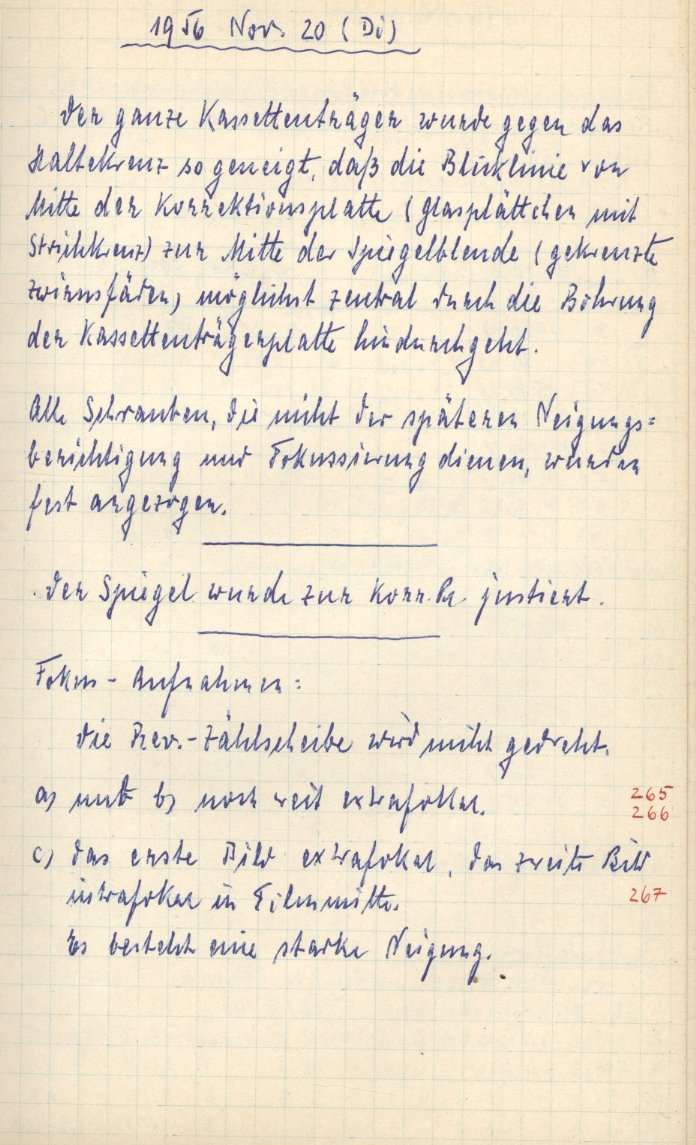 1956 Nov. 20 (Di)
Der ganze Kassettenträger wurde gegen das
Haltekreuz so geneigt, daß die Blicklinie von
Mitte der Korrektionsplatte (Glasplättchen mit
Strichkreuz) zur Mitte der Spiegelblende (gekreuzte
Zwirnsfäden) möglichst zentral durch die Bohrung
der Kassettenträgerplatte hindurchgeht.
Alle Schrauben, die nicht der späteren Neigungs=
berichtigung und Fokussierung dienen, wurden
fest angezogen.
Der Spiegel wurde zur Korr. Pl. justiert.
Fokus-Aufnahmen:
Die Rev.-Zählscheibe wird nicht gedreht.
a) und b) noch weit extrafokal. 265
266
c) das erste Bild extrafokal, das zweite Bild
intrafokal in Filmmitte. 267
Es besteht eine starke Neigung.